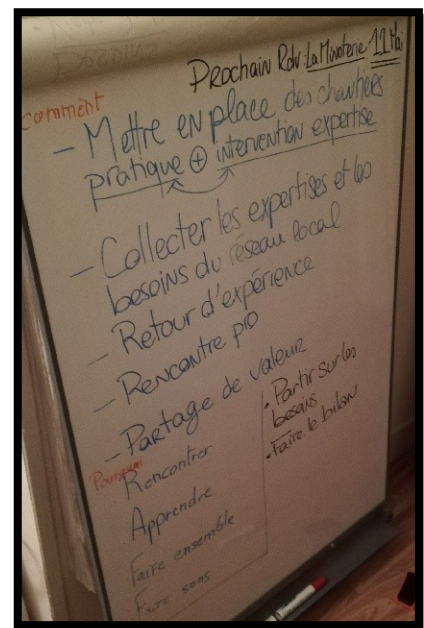 Prochain Rdv : La Minoterie 11 Mai
comment
- Mettre en place des chantiers
pratique + intervention expertise
- Collecter les expertises et les
besoins du réseau local
- Retour d'expérience
- Rencontre pro
- Partage de valeur
Pourquoi
Rencontrer
Apprendre
Faire ensemble
Faire sens
• Partir sur les
besoins
• Faire le bilan